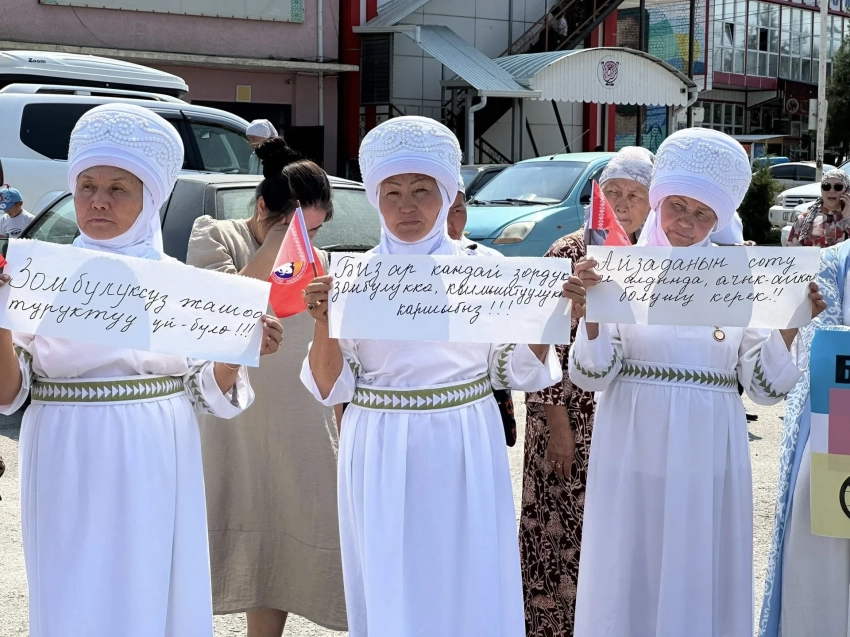 Zoom
Зомбулуксуз жашоо
туруктуу үй-бүлө !!!
Биз ар кандай зордук
зомбулукка, кылмыштуулукка
каршыбыз !!!
Айзаданын соту
эл алдында, ачык-айкын
болушу керек!!